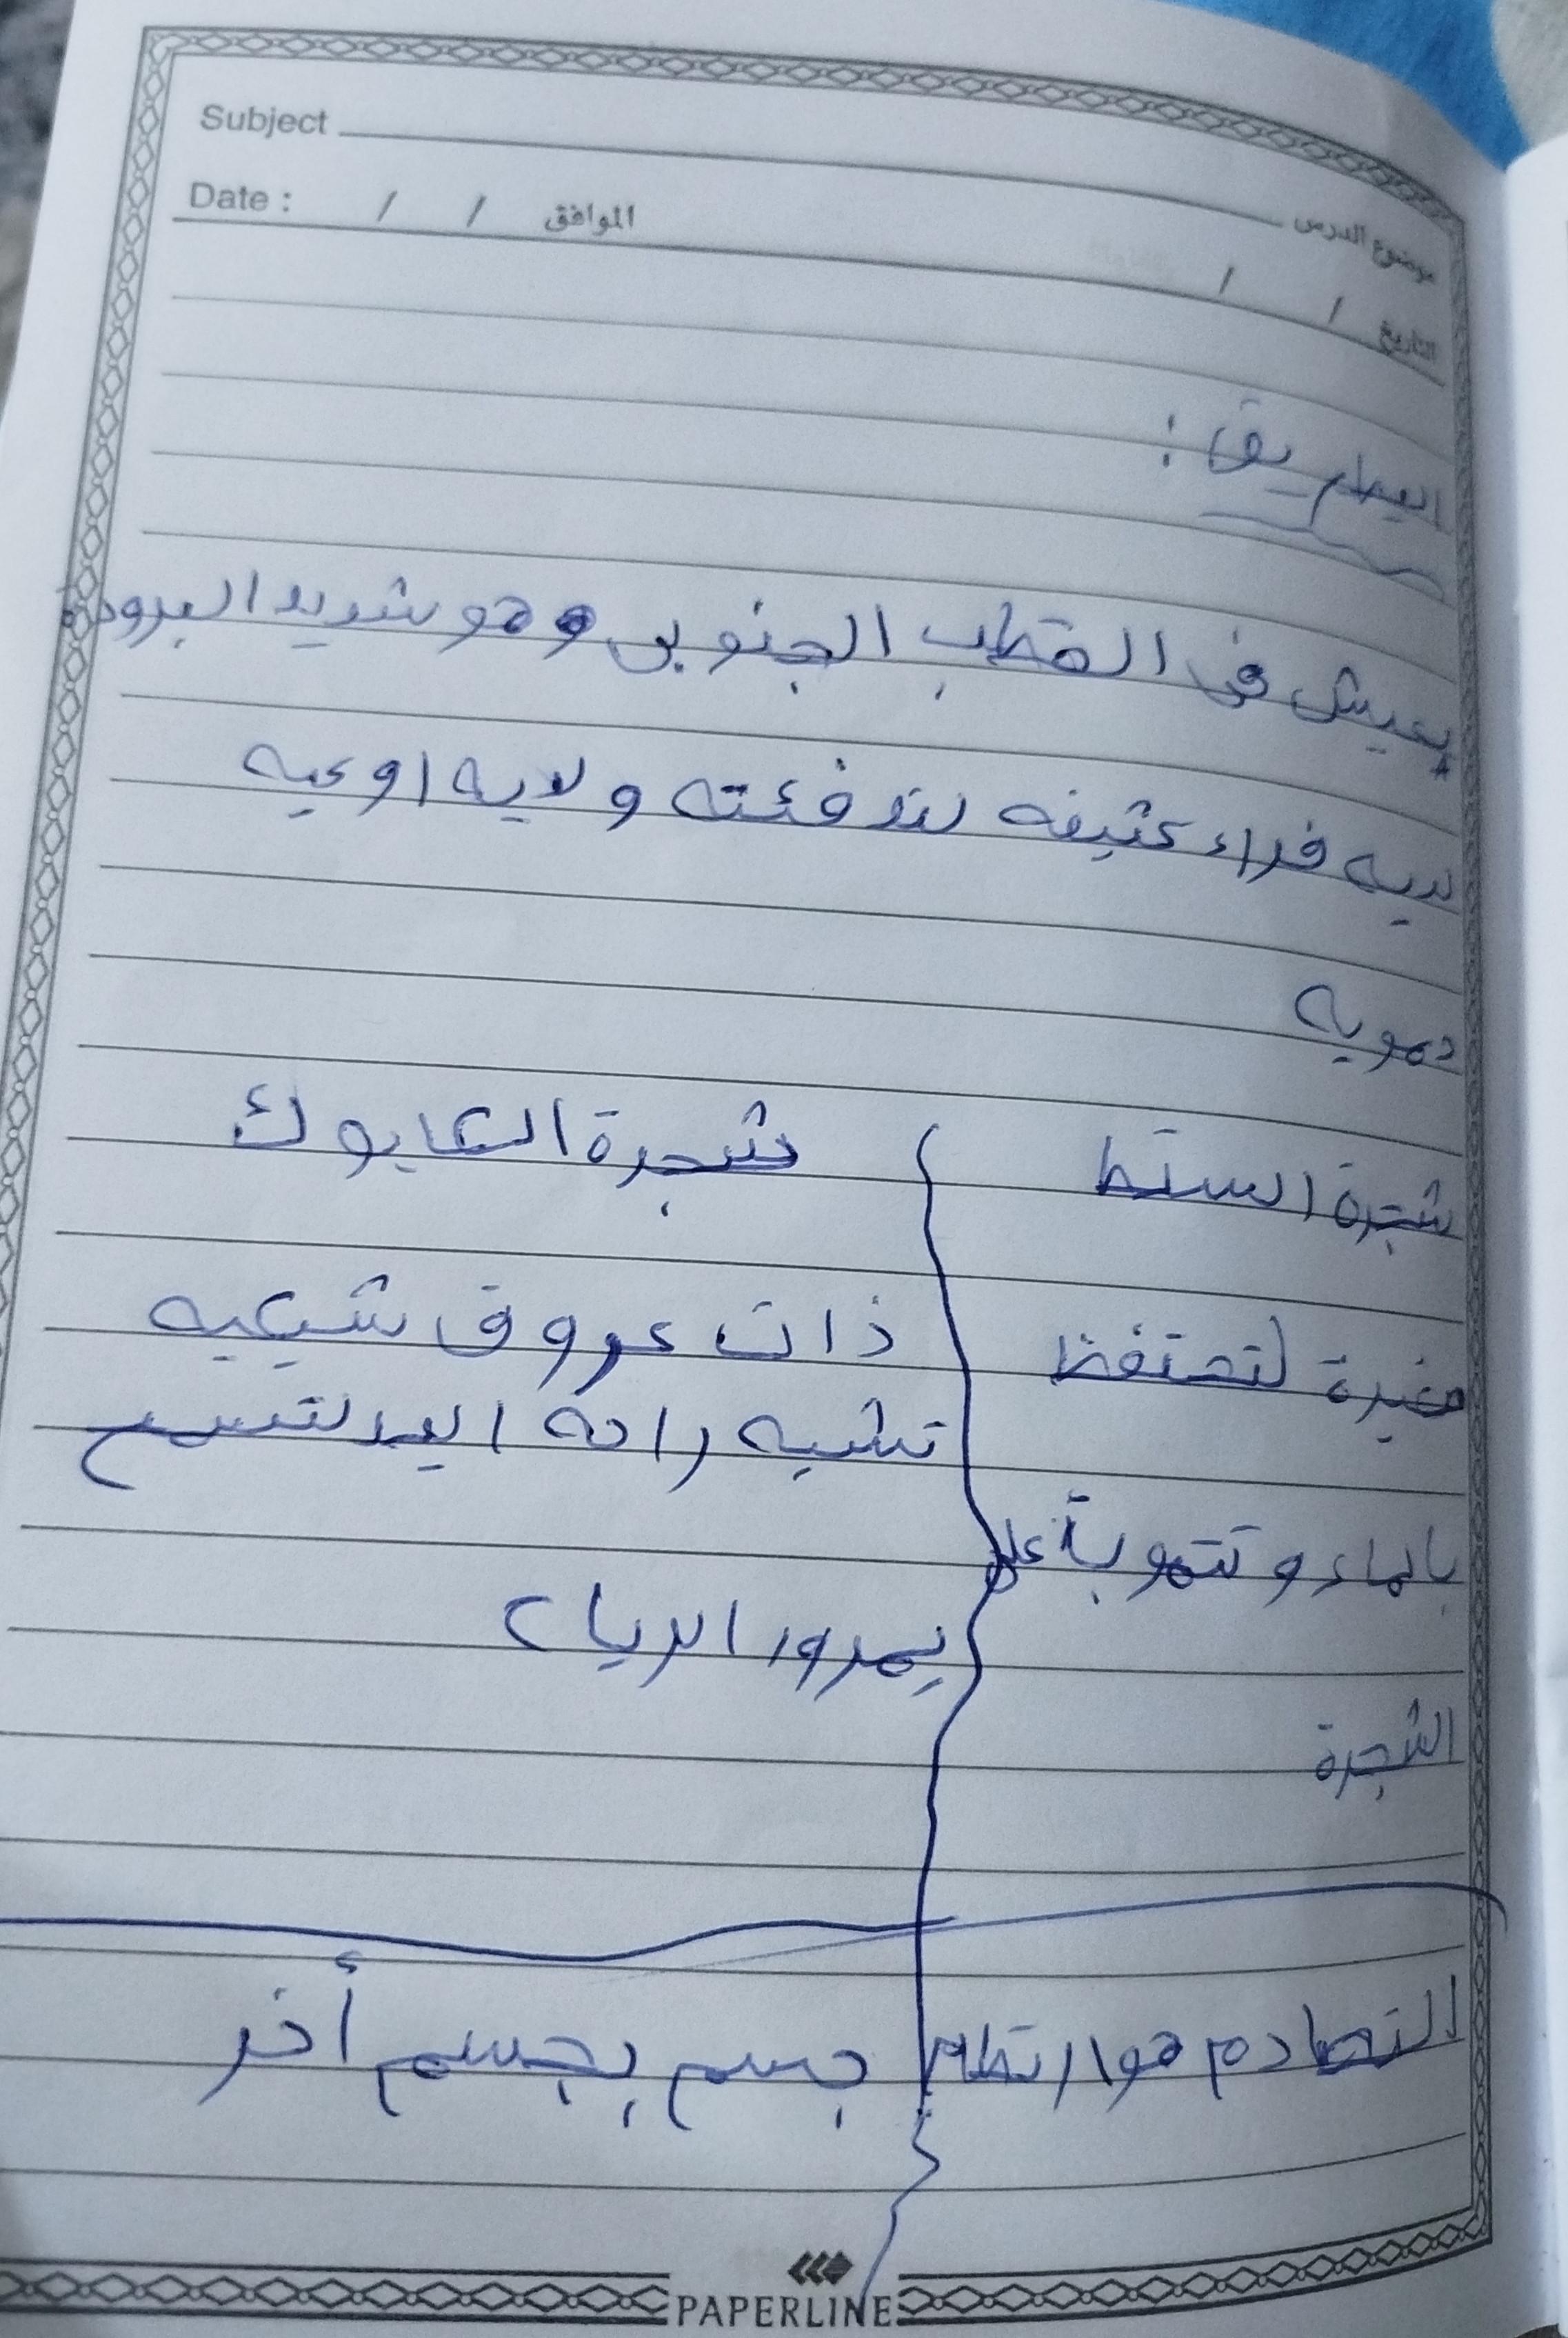 Subject موضوع الدرس
Date : / / الموافق / / التاريخ
البطريق :
يعيش فى القطب الجنوبى وهو شديد البرودة
لديه فراء كثيفه لتدفئته ولديه اوعيه
دمويه
شجرة السنط
صغيرة لتحتفظ
بالماء و تنمو بة على
الشجرة
شجرة الكابوك
ذات عروق شبكيه
تشبه راحه اليد لتسمح
بمرور الرياح
التصادم هو ارتطام جسم بجسم أخر
PAPERLINE